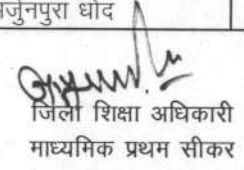 र्जुनपुरा धोद
जिला शिक्षा अधिकारी
माध्यमिक प्रथम सीकर